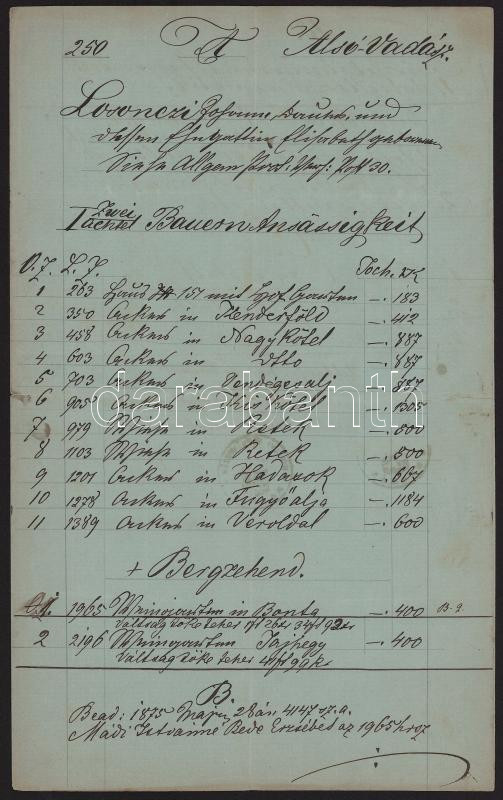 250 A Alsó-Vadász.
Losonczi Johann, und
dessen Ehegattin Elisabeth geborene
Siehe Allgem. Prot. 30.
Zwei
I Achtel Bauern Ansässigkeit
O.Z. L.Z. Joch. □K
1 263 Haus № 151 mit Hof Garten —. 183
2 350 Acker in Kenderföld —. 412
3 458 Acker in Nagykötel —. 887
4 603 Acker in dtto —. 887
5 703 Acker in Vendégesalj —. 887
6 905 Acker in Kis kötel —. 1305
7 979 Wiese in Retek —. 500
8 1103 Wiese in Retek —. 500
9 1201 Acker in Hadazok —. 667
10 1278 Acker in Fügyőalja —. 1184
11 1389 Acker in Veroldal —. 600
darabanth
+ Bergzehend.
1. 1965 Weingarten in Bonta —. 400 B.1.
Váltság töke teher
2 2196 Weingarten Jajhegy —. 400
Váltság töke teher 4 ft 99 kr
B.
Bead: 1875 Máj. 28án 4147 sz. a.
Mádi Istvánné Bede Erzsébet az 1965 hroz